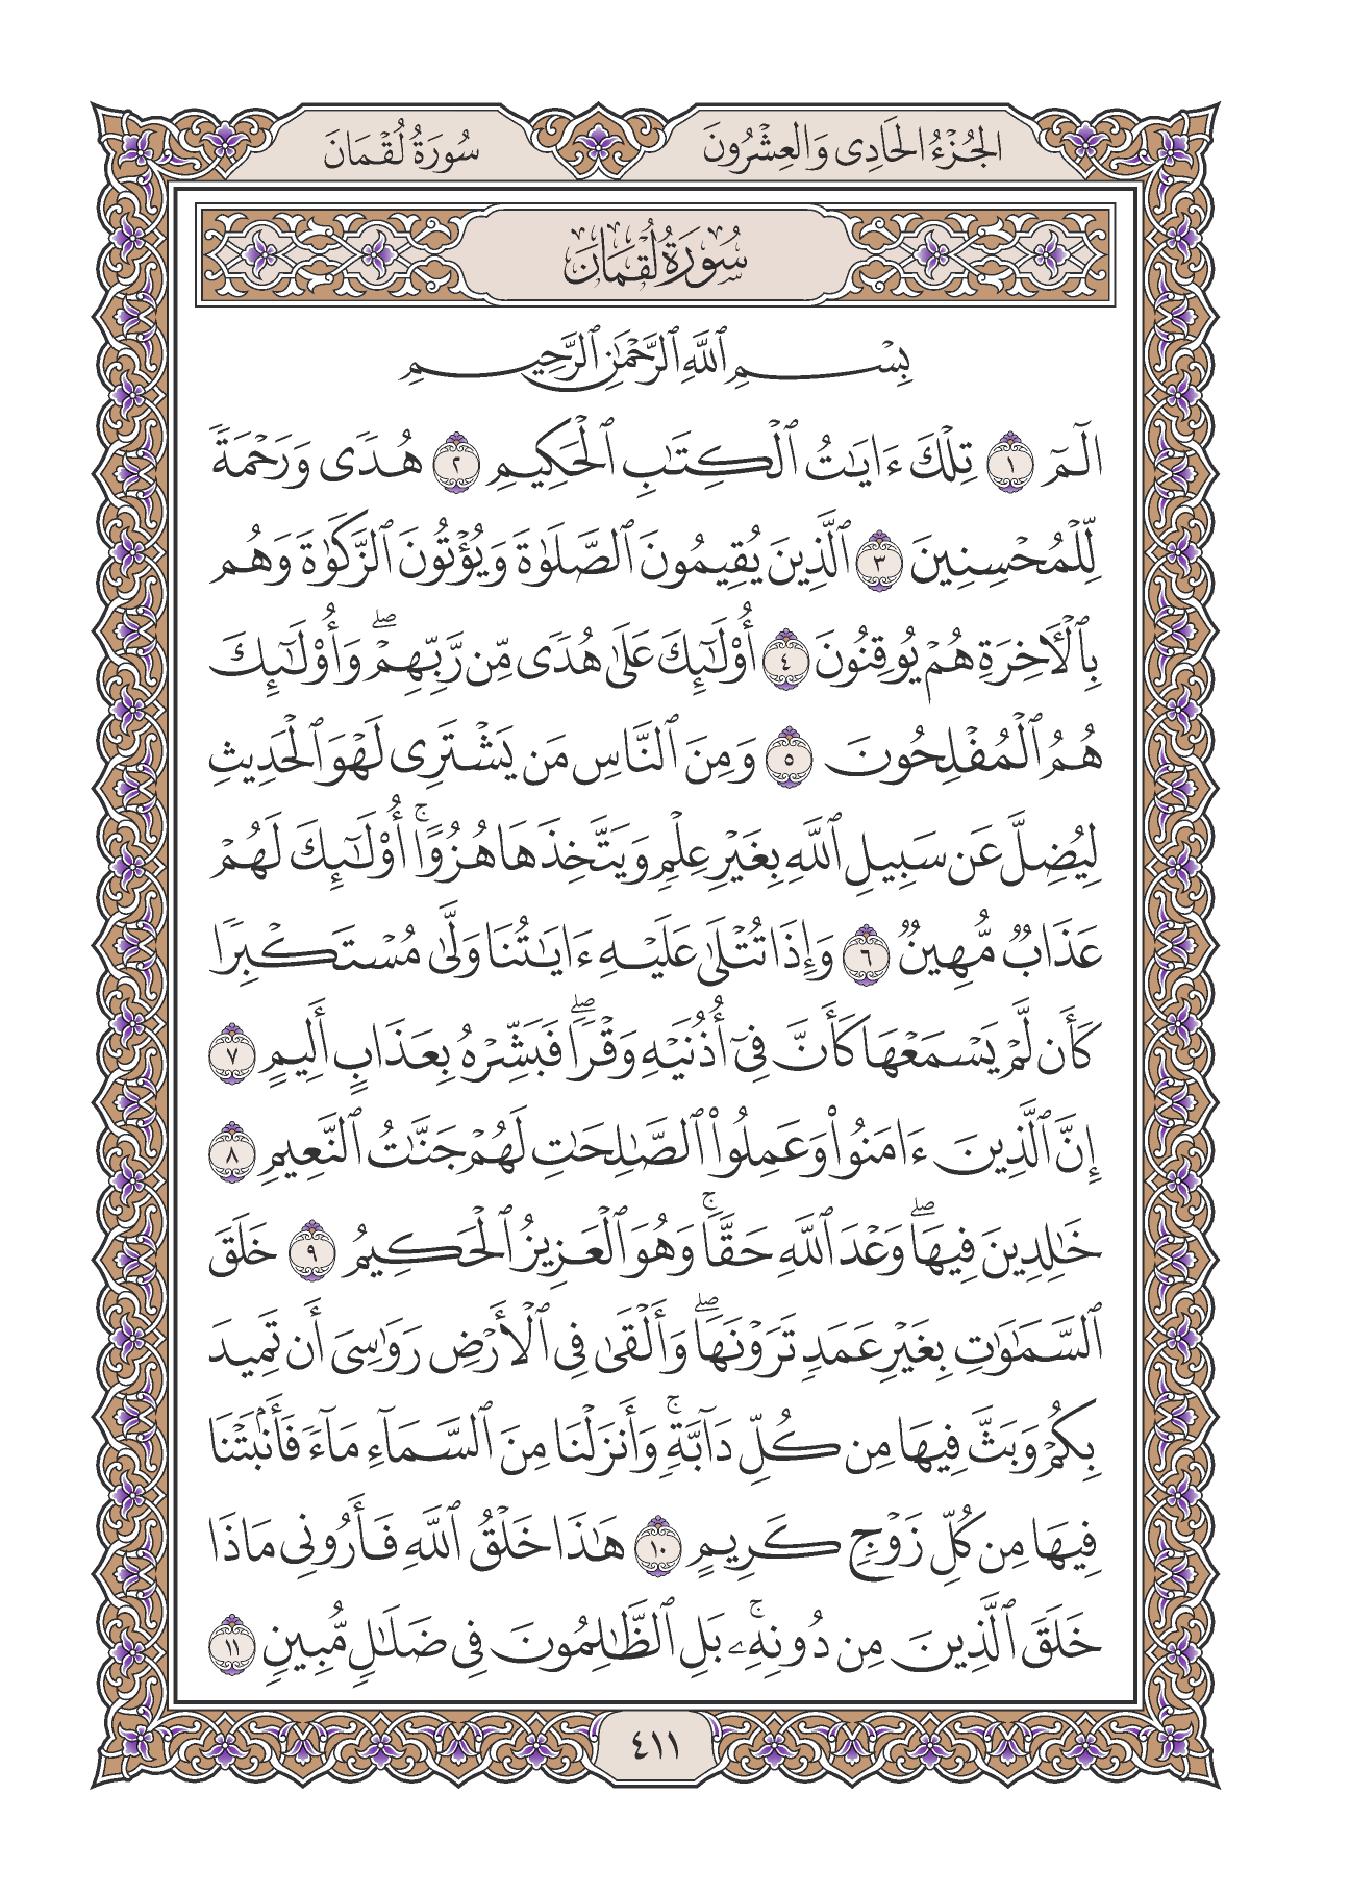 الجُزْءُ الحَادِى وَالعِشْرُونَ
سُورَةُ لُقْمَانَ
سُورَةُ لُقْمَانَ
بِسْمِ ٱللَّهِ ٱلرَّحْمَٰنِ ٱلرَّحِيمِ
الٓمٓ ١ تِلْكَ ءَايَٰتُ ٱلْكِتَٰبِ ٱلْحَكِيمِ ٢ هُدًى وَرَحْمَةً
لِّلْمُحْسِنِينَ ٣ ٱلَّذِينَ يُقِيمُونَ ٱلصَّلَوٰةَ وَيُؤْتُونَ ٱلزَّكَوٰةَ وَهُم
بِٱلْأٓخِرَةِ هُمْ يُوقِنُونَ ٤ أُو۟لَٰٓئِكَ عَلَىٰ هُدًى مِّن رَّبِّهِمْۖ وَأُو۟لَٰٓئِكَ
هُمُ ٱلْمُفْلِحُونَ ٥ وَمِنَ ٱلنَّاسِ مَن يَشْتَرِى لَهْوَ ٱلْحَدِيثِ
لِيُضِلَّ عَن سَبِيلِ ٱللَّهِ بِغَيْرِ عِلْمٍ وَيَتَّخِذَهَا هُزُوًاۚ أُو۟لَٰٓئِكَ لَهُمْ
عَذَابٌ مُّهِينٌ ٦ وَإِذَا تُتْلَىٰ عَلَيْهِ ءَايَٰتُنَا وَلَّىٰ مُسْتَكْبِرًا
كَأَن لَّمْ يَسْمَعْهَا كَأَنَّ فِىٓ أُذُنَيْهِ وَقْرًاۖ فَبَشِّرْهُ بِعَذَابٍ أَلِيمٍ ٧
إِنَّ ٱلَّذِينَ ءَامَنُوا۟ وَعَمِلُوا۟ ٱلصَّٰلِحَٰتِ لَهُمْ جَنَّٰتُ ٱلنَّعِيمِ ٨
خَٰلِدِينَ فِيهَاۖ وَعْدَ ٱللَّهِ حَقًّاۚ وَهُوَ ٱلْعَزِيزُ ٱلْحَكِيمُ ٩ خَلَقَ
ٱلسَّمَٰوَٰتِ بِغَيْرِ عَمَدٍ تَرَوْنَهَاۖ وَأَلْقَىٰ فِى ٱلْأَرْضِ رَوَٰسِىَ أَن تَمِيدَ
بِكُمْ وَبَثَّ فِيهَا مِن كُلِّ دَآبَّةٍۚ وَأَنزَلْنَا مِنَ ٱلسَّمَآءِ مَآءً فَأَنۢبَتْنَا
فِيهَا مِن كُلِّ زَوْجٍ كَرِيمٍ ١٠ هَٰذَا خَلْقُ ٱللَّهِ فَأَرُونِى مَاذَا
خَلَقَ ٱلَّذِينَ مِن دُونِهِۦۚ بَلِ ٱلظَّٰلِمُونَ فِى ضَلَٰلٍ مُّبِينٍ ١١
٤١١